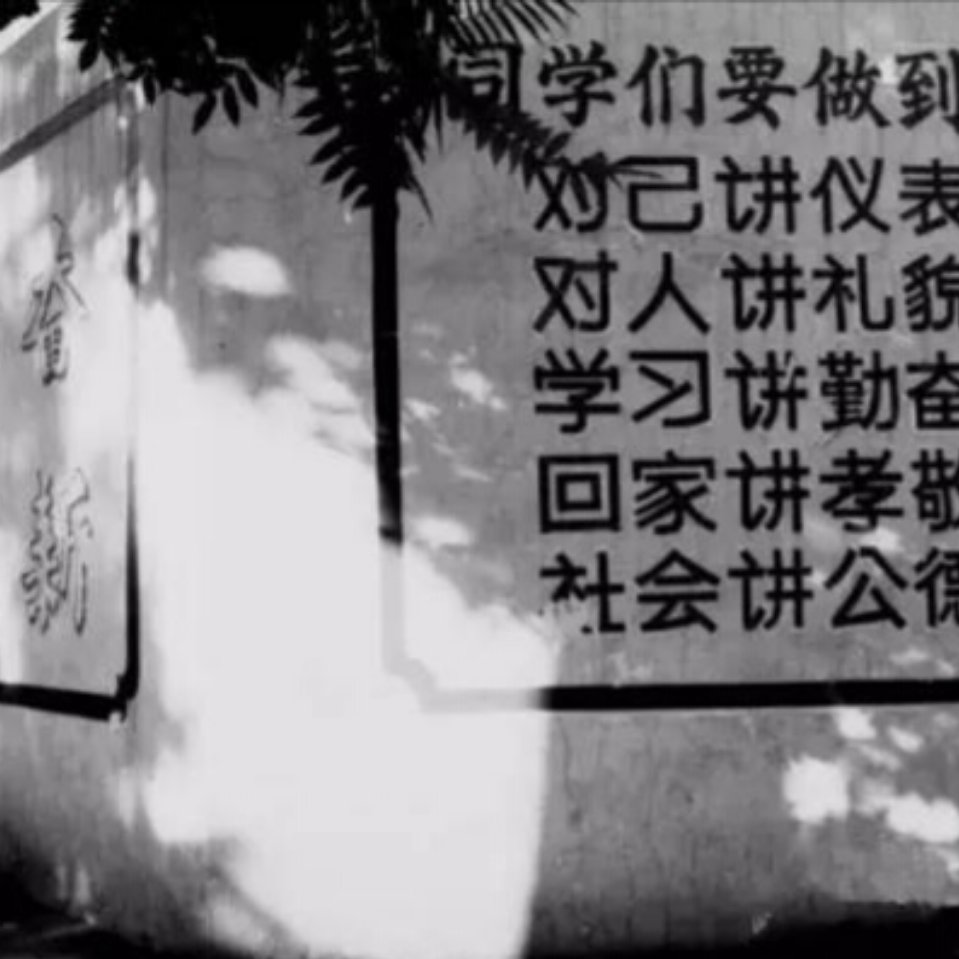 同学们要做到
对己讲仪表
对人讲礼貌
学习讲勤奋
回家讲孝敬
社会讲公德